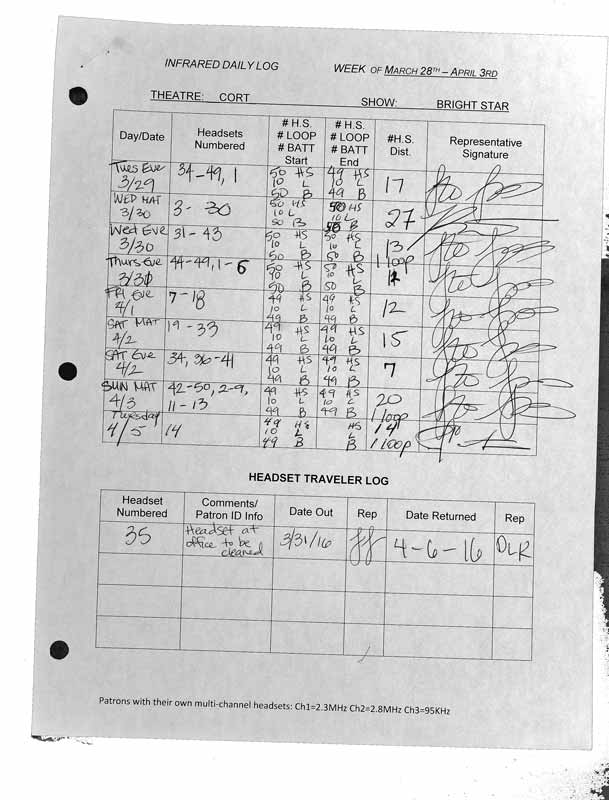 INFRARED DAILY LOG WEEK OF MARCH 28TH – APRIL 3RD
THEATRE: CORT SHOW: BRIGHT STAR
Day/Date Headsets Numbered # H.S. # LOOP # BATT Start # H.S. # LOOP # BATT End #H.S. Dist. Representative Signature
Tues Eve 3/29 34-49, 1 50 HS 10 L 50 B 49 HS 10 L 49 B 17
WED MAT 3/30 3- 30 50 HS 10 L 50 B 50 HS 10 L 50 B 27
Wed Eve 3/30 31-43 50 HS 10 L 50 B 50 HS 10 L 50 B 13 1 loop
Thurs Eve 44-49, 1-6 50 HS 10 L 50 B 50 HS 10 L 50 B
FRI Eve 4/1 7-18 49 HS 10 L 49 B 49 HS 10 L 49 B 12
SAT MAT 4/2 19-33 49 HS 10 L 49 B 49 HS 10 L 49 B 15
SAT Eve 4/2 34, 36-41 49 HS 10 L 49 B 49 HS 10 L 49 B 7
SUN MAT 4/3 42-50, 2-9, 11-13 49 HS 10 L 49 B 49 HS 10 L 49 B 20 1 loop
Tuesday 4/5 14 49 HS 10 L 49 B HS L B 14 1 loop
HEADSET TRAVELER LOG
Headset Numbered Comments/ Patron ID Info Date Out Rep Date Returned Rep
35 Headset at office to be cleaned 3/31/16 4-6-16 DLR
Patrons with their own multi-channel headsets: Ch1=2.3MHz Ch2=2.8MHz Ch3=95KHz